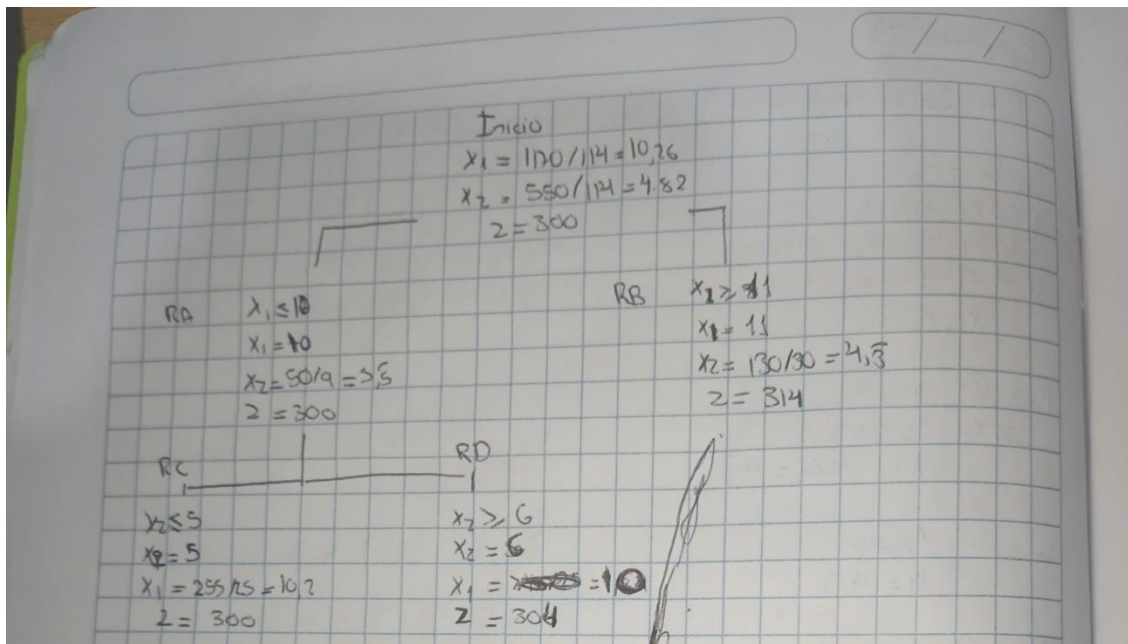 Inicio
x1 = 1170/114 = 10,26
x2 = 550/114 = 4.82
Z = 300
RA
x1 ≤ 10
x1 = 10
x2 = 50/9 = 5,5
Z = 300
RB
x1 ≥ 11
x1 = 11
x2 = 130/30 = 4,3
Z = 314
RC
x2 ≤ 5
x2 = 5
x1 = 255/25 = 10,2
Z = 300
RD
x2 ≥ 6
x2 = 6
x1 = = 10
Z = 304